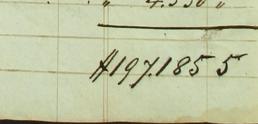 " 4.550 "
#197.185 5